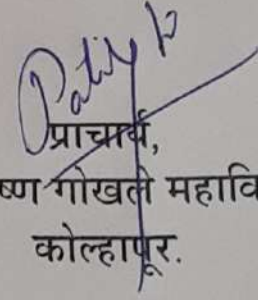 Patil
प्राचार्य,
ष्ण गोखले महावि
कोल्हापूर.